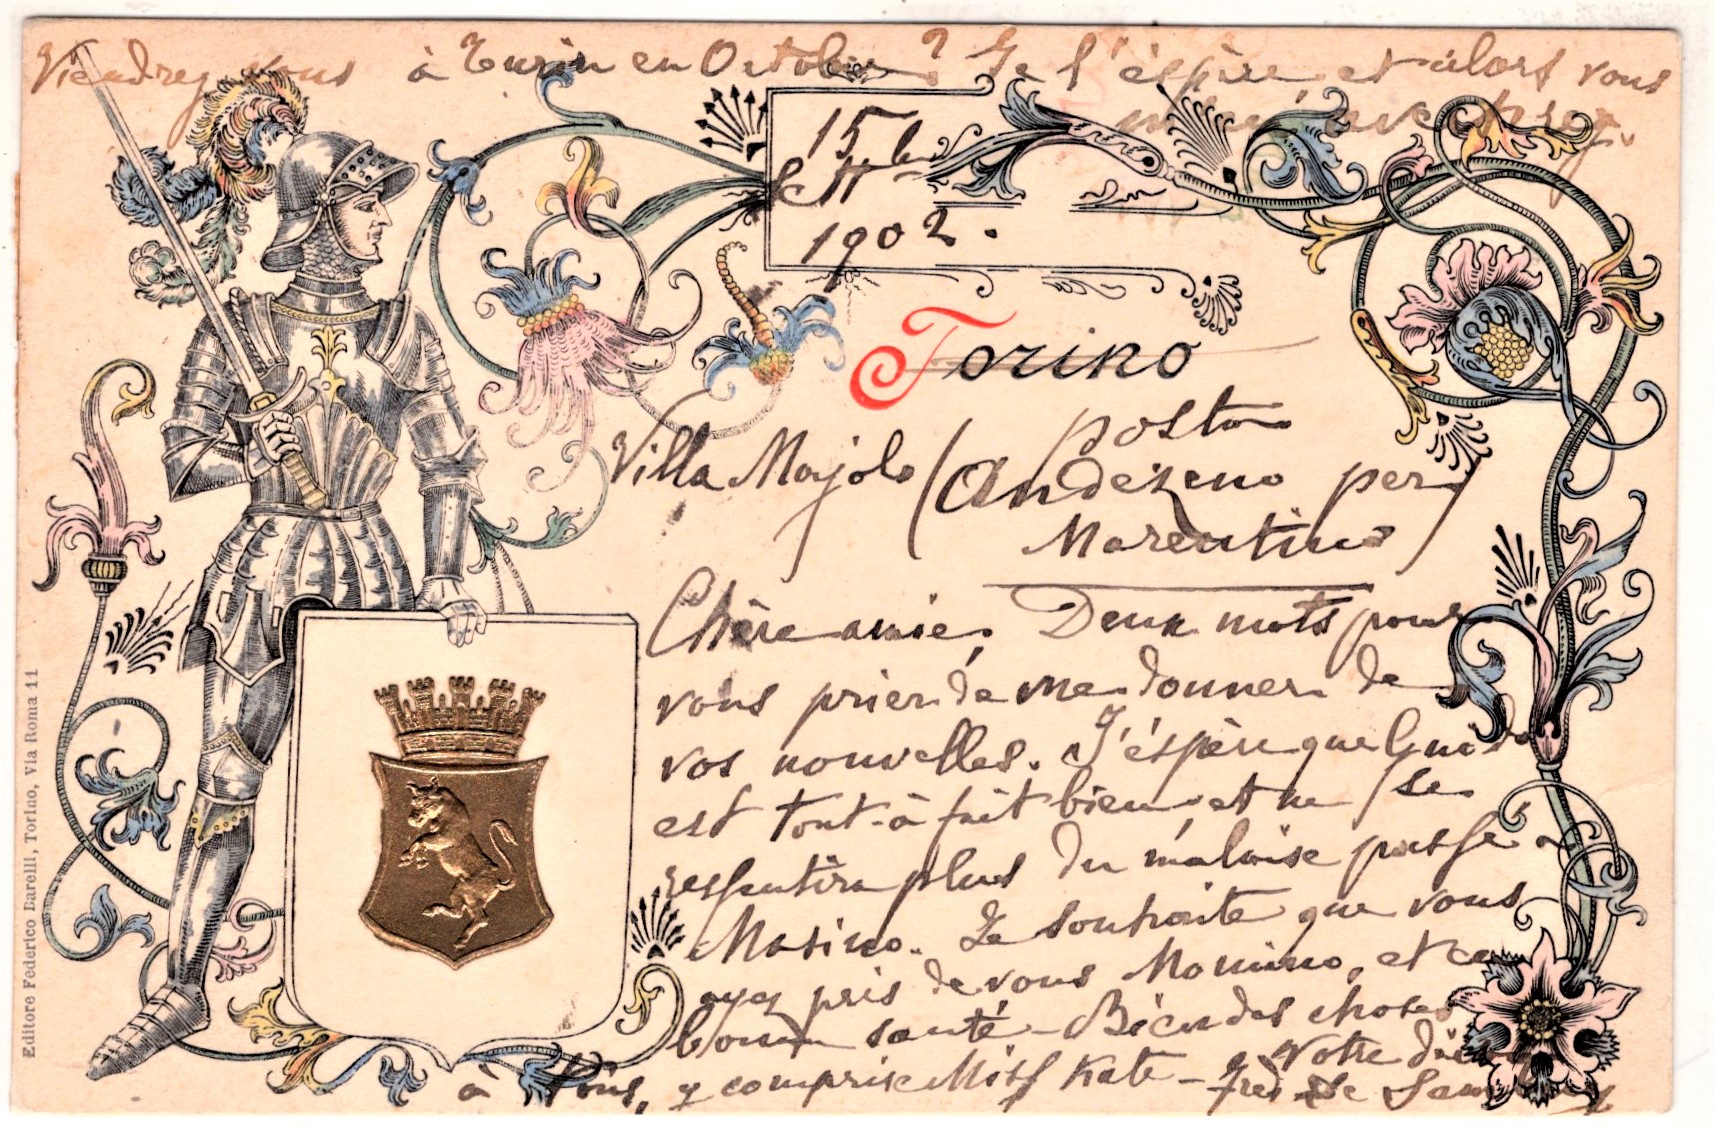 Viendrez vous à Turin en Octobre? Je l'éspère et alors vous
15 7bre
1902.
Torino
Villa Majolo (posta
Andezeno per
Marentino)
Chère amie. Deux mots pour
vous prier de me donner de
vos nouvelles. J'éspère que
est tout-à fait bien et ne se
ressentira plus du malaise passé à
Masino. Je souhaite que vous
ayez près de vous Momino, et en
bonne santé - Bien des choses
à Tous, y compris Miss Kate - Votre
Editore Federico Barelli, Torino, Via Roma 11